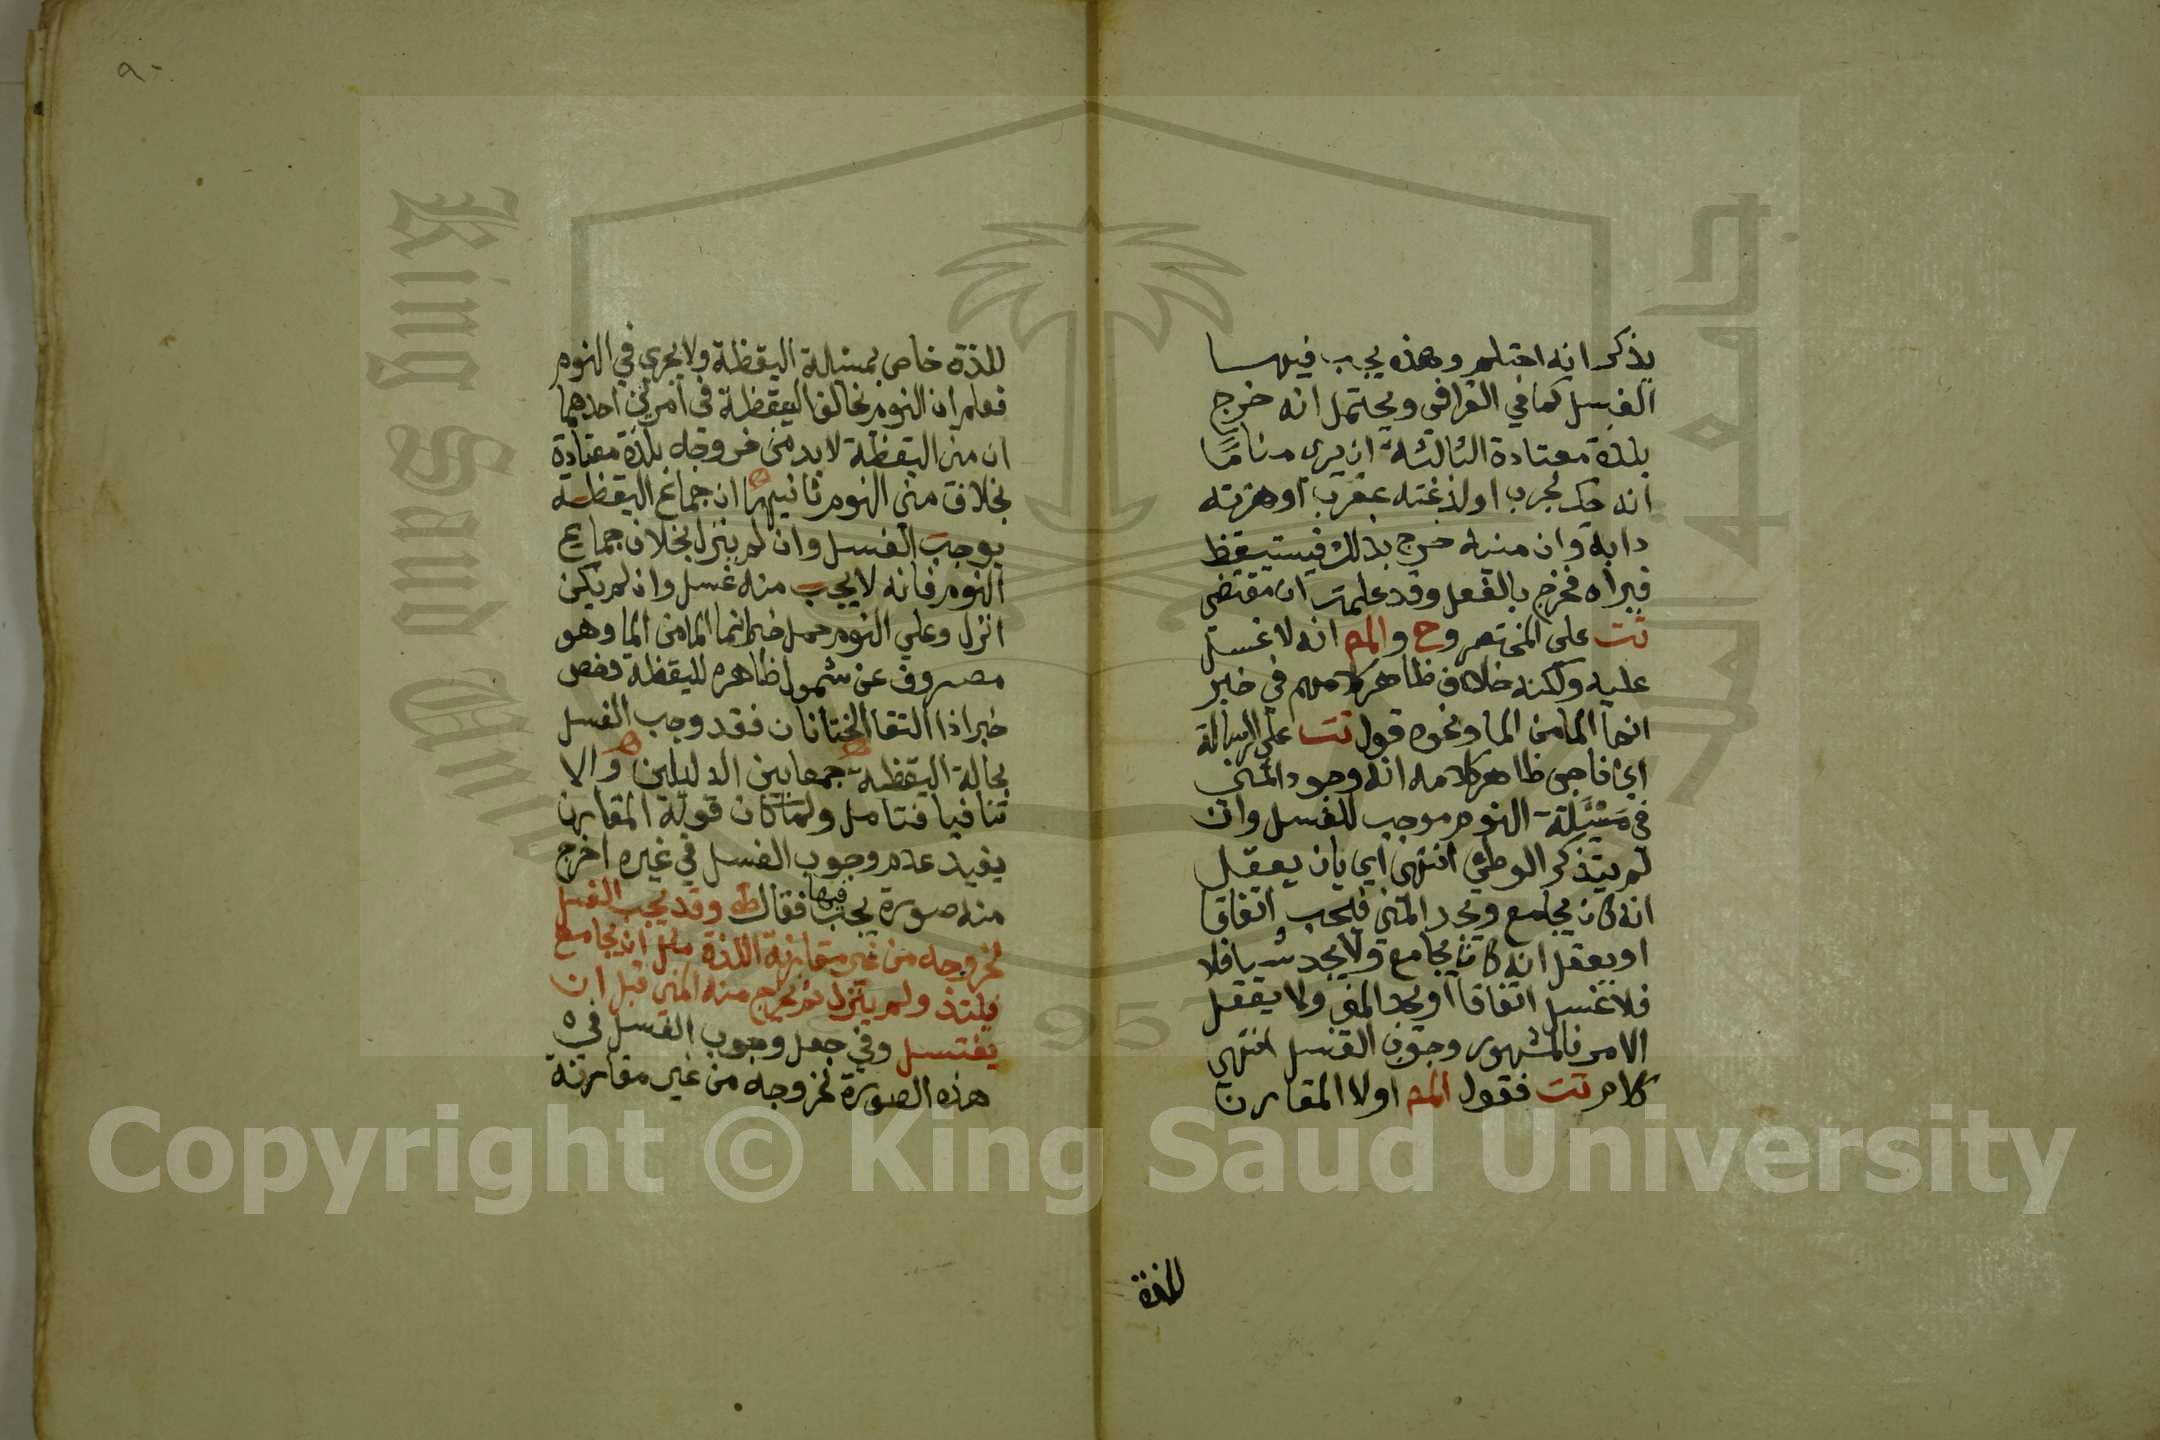 يذكر انه احتلم وهذه يجب فيهسا
الغسل كما في القرافي ويحتمل انه خرج
بلذة معتادة الثالثة ان يرى منامًا
انه حك لجرب او لذغته عقرب أو هزته
دابة وان منيه خرج بذلك فيستيقظ
فيراه فخرج بالفعل وقد علمت ان مقتضى
تت على المختصر وح والمص انه لا غسل
عليه ولكنه خلاف ظاهر كلامهم في خبر
انما الما من الما ونحوه قول تت على الرسالة
ابن ناجي ظاهر كلامه انه وجود المني
في مسئلة النوم موجب للغسل وان
لم يتذكر الوطي انتهى اي بان يعقل
انه كان يجامع ويجد المني فيجب اتفاقا
او يعقل انه كان يجامع ولا يجد شيا فلا
فلا غسل اتفاقا او يجد المني ولا يعقل
الامر فالمشهور وجوب الغسل انتهى
كلام تت فقول المص اولا المقارن
للذة
٩٠
للذة خاص بمسالة اليقظة ولا يجري في النوم
فعلم ان النوم يخالف اليقظة في امرين احدهما
ان مني اليقظة لا بد من خروجه بلذة معتادة
بخلاف مني النوم ثانيهما ان جماع اليقظة
يوجب الغسل وان لم ينزل بخلاف جماع
النوم فانه لا يجب منه غسل وان لم يكن
انزل وعلى النوم حمل خبر انما الما من الما وهو
مصروف عن شمول ظاهره لليقظة وخص
خبر اذا التقا الختانان فقد وجب الغسل
بحالة اليقظة جمعا بين الدليلين والا
تنافيا فتامل ولما كان قوله المقارن
يفيد عدم وجوب الغسل في غيره اخرج
منه صورة يجب فيها فقال وقد يجب الغسل
لخروجه من غير مقارنة اللذة مثل ان يجامع
فيلتذ ولم ينزل ثم يخرج منه المني قبل ان
يغتسل وفي جعل وجوب الغسل في ه
هذه الصورة لخروجه من غير مقارنة
جامعة الملك سعود
King Saud University
1957
Copyright © King Saud University